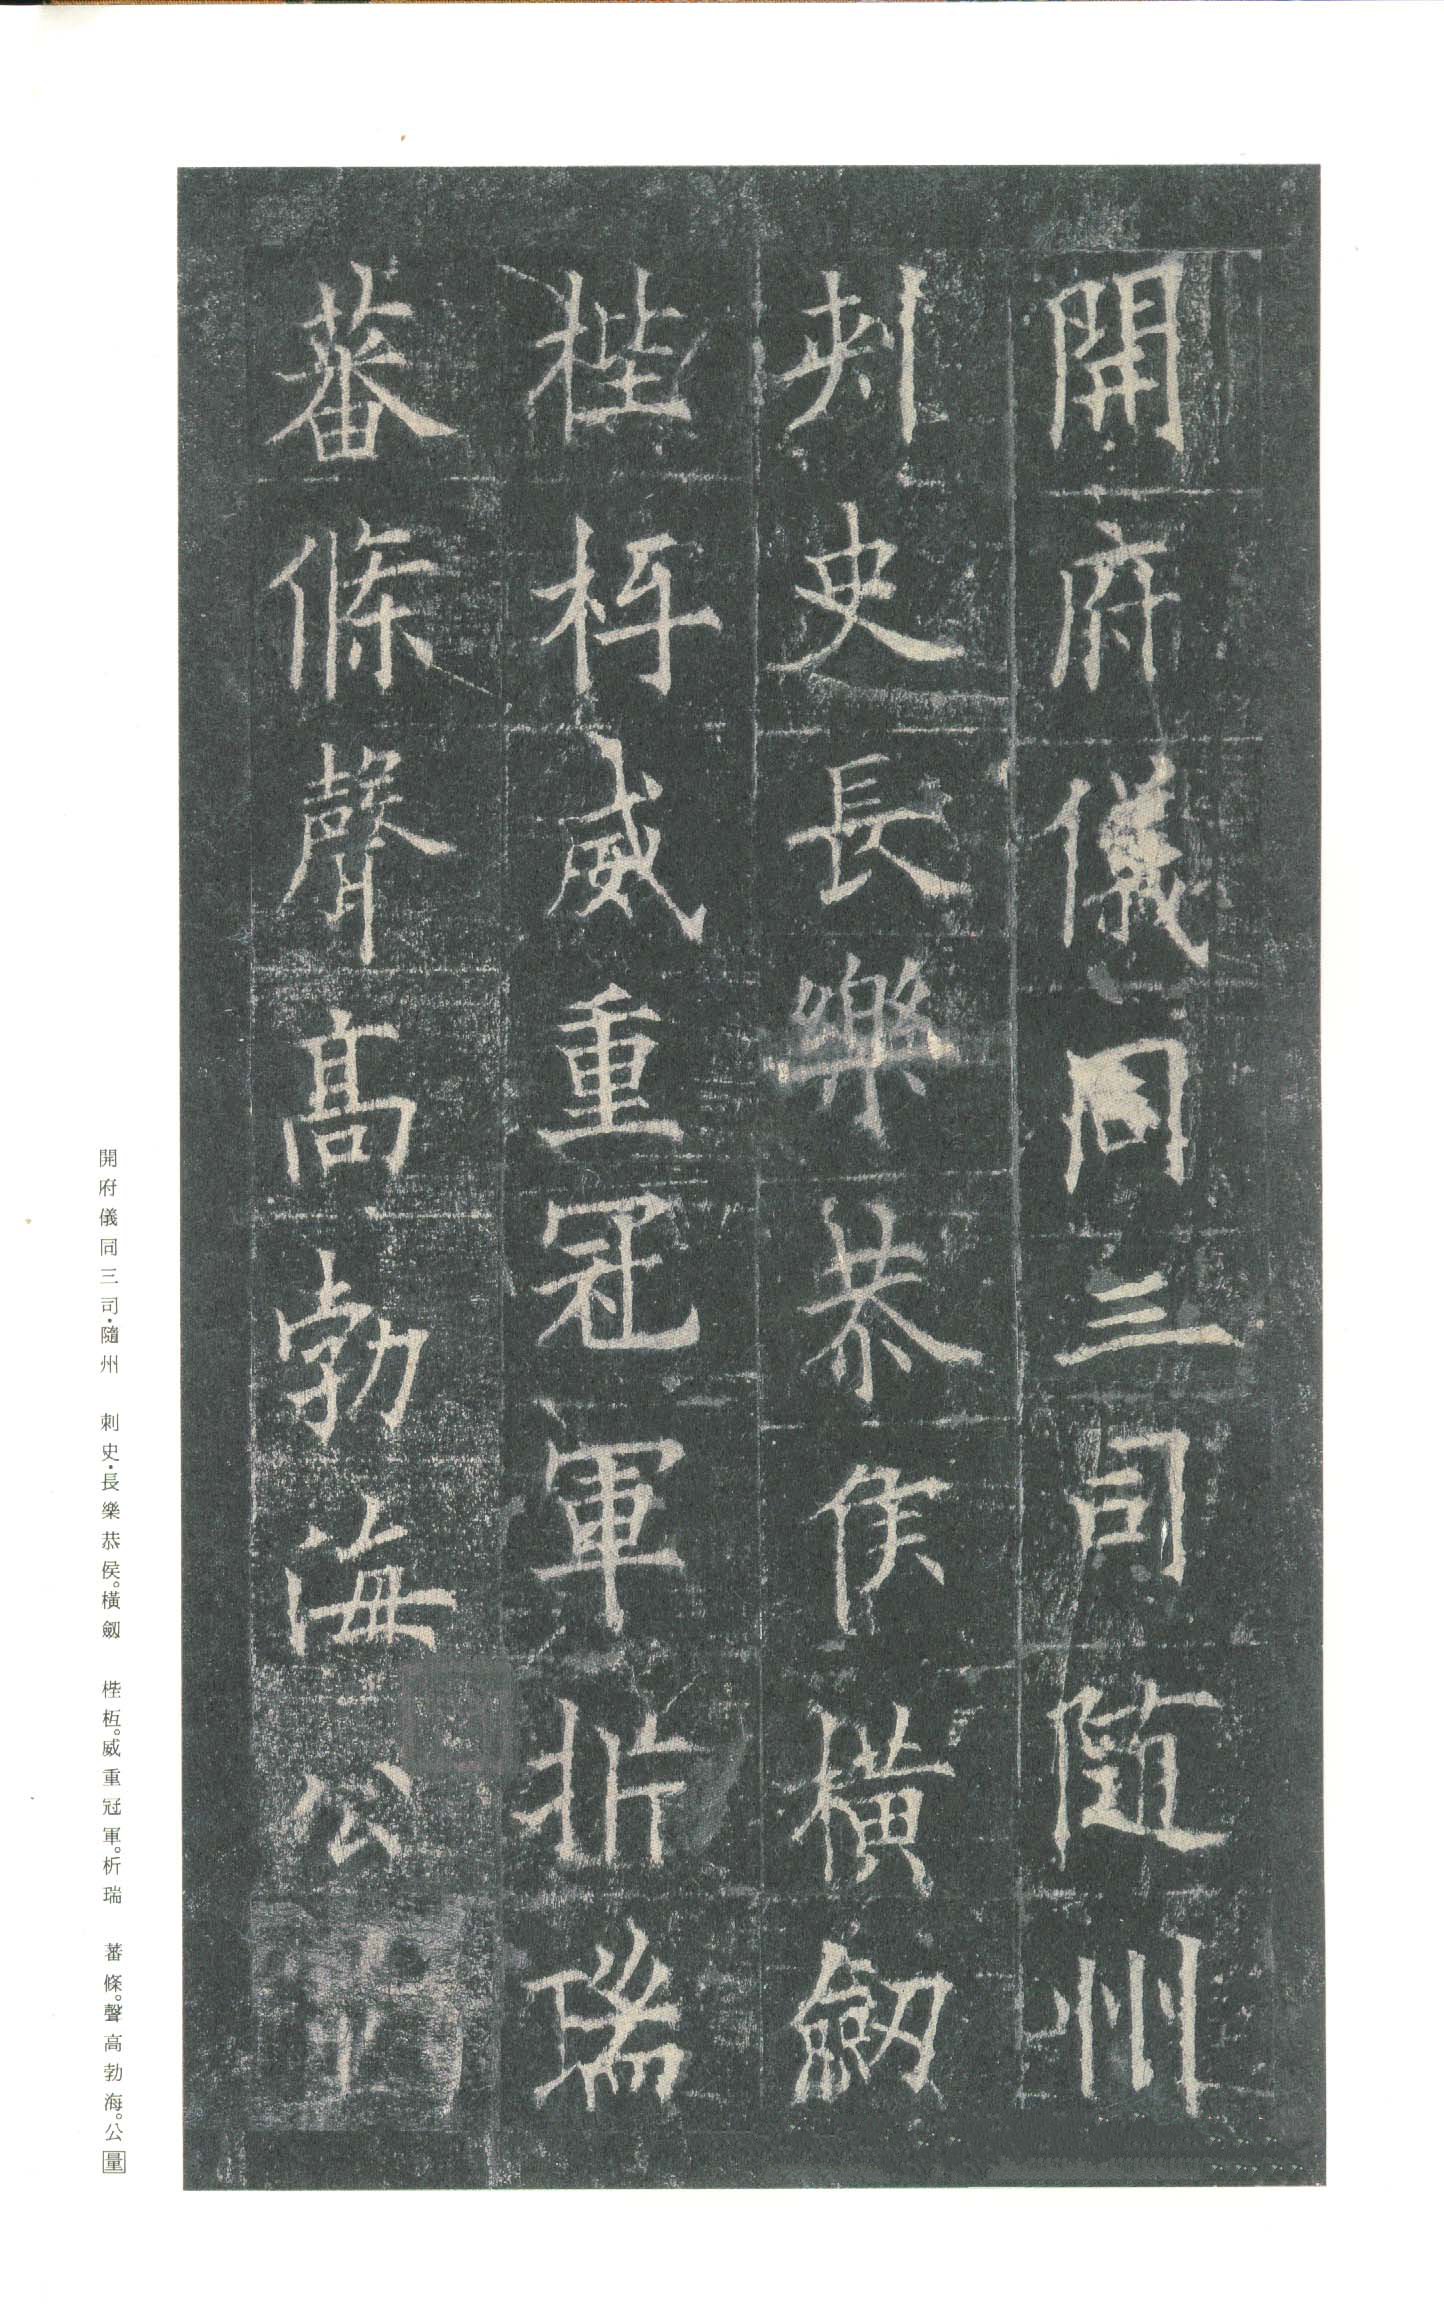 開府儀同三司隨州
刾史長樂恭侯橫劔
梐枑威重冠軍析瑞
蕃條聲髙勃海公
開府儀同三司・隨州　刺史・長樂恭侯。橫劔　梐枑。威重冠軍。析瑞　蕃條。聲高勃海。公量